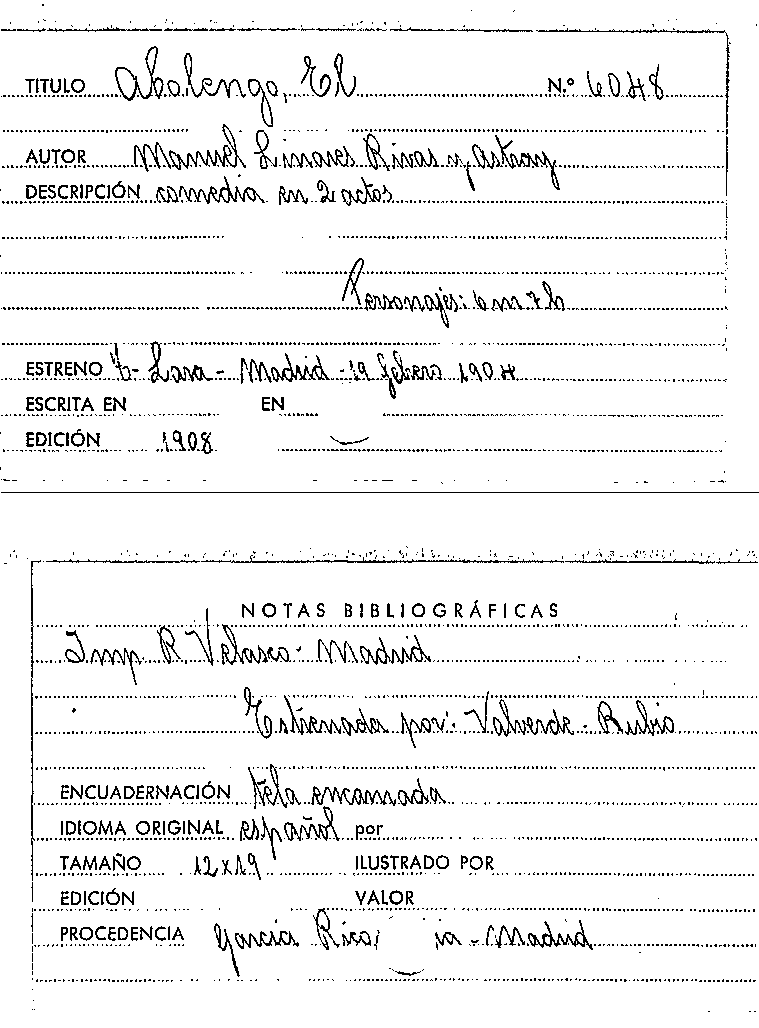 TITULO Abolengo, El N.º 6048
AUTOR Manuel Linares Rivas y Astray
DESCRIPCIÓN comedia en 2 actos
Personajes: 6 m 7 h
ESTRENO T- Lara - Madrid - 19 febrero 1904
ESCRITA EN EN
EDICIÓN 1908
NOTAS BIBLIOGRÁFICAS
Imp R. Velasco - Madrid
Estrenada por: Valverde - Rubio
ENCUADERNACIÓN tela encarnada
IDIOMA ORIGINAL español por
TAMAÑO 12x19 ILUSTRADO POR
EDICIÓN VALOR
PROCEDENCIA García Rico, - Madrid